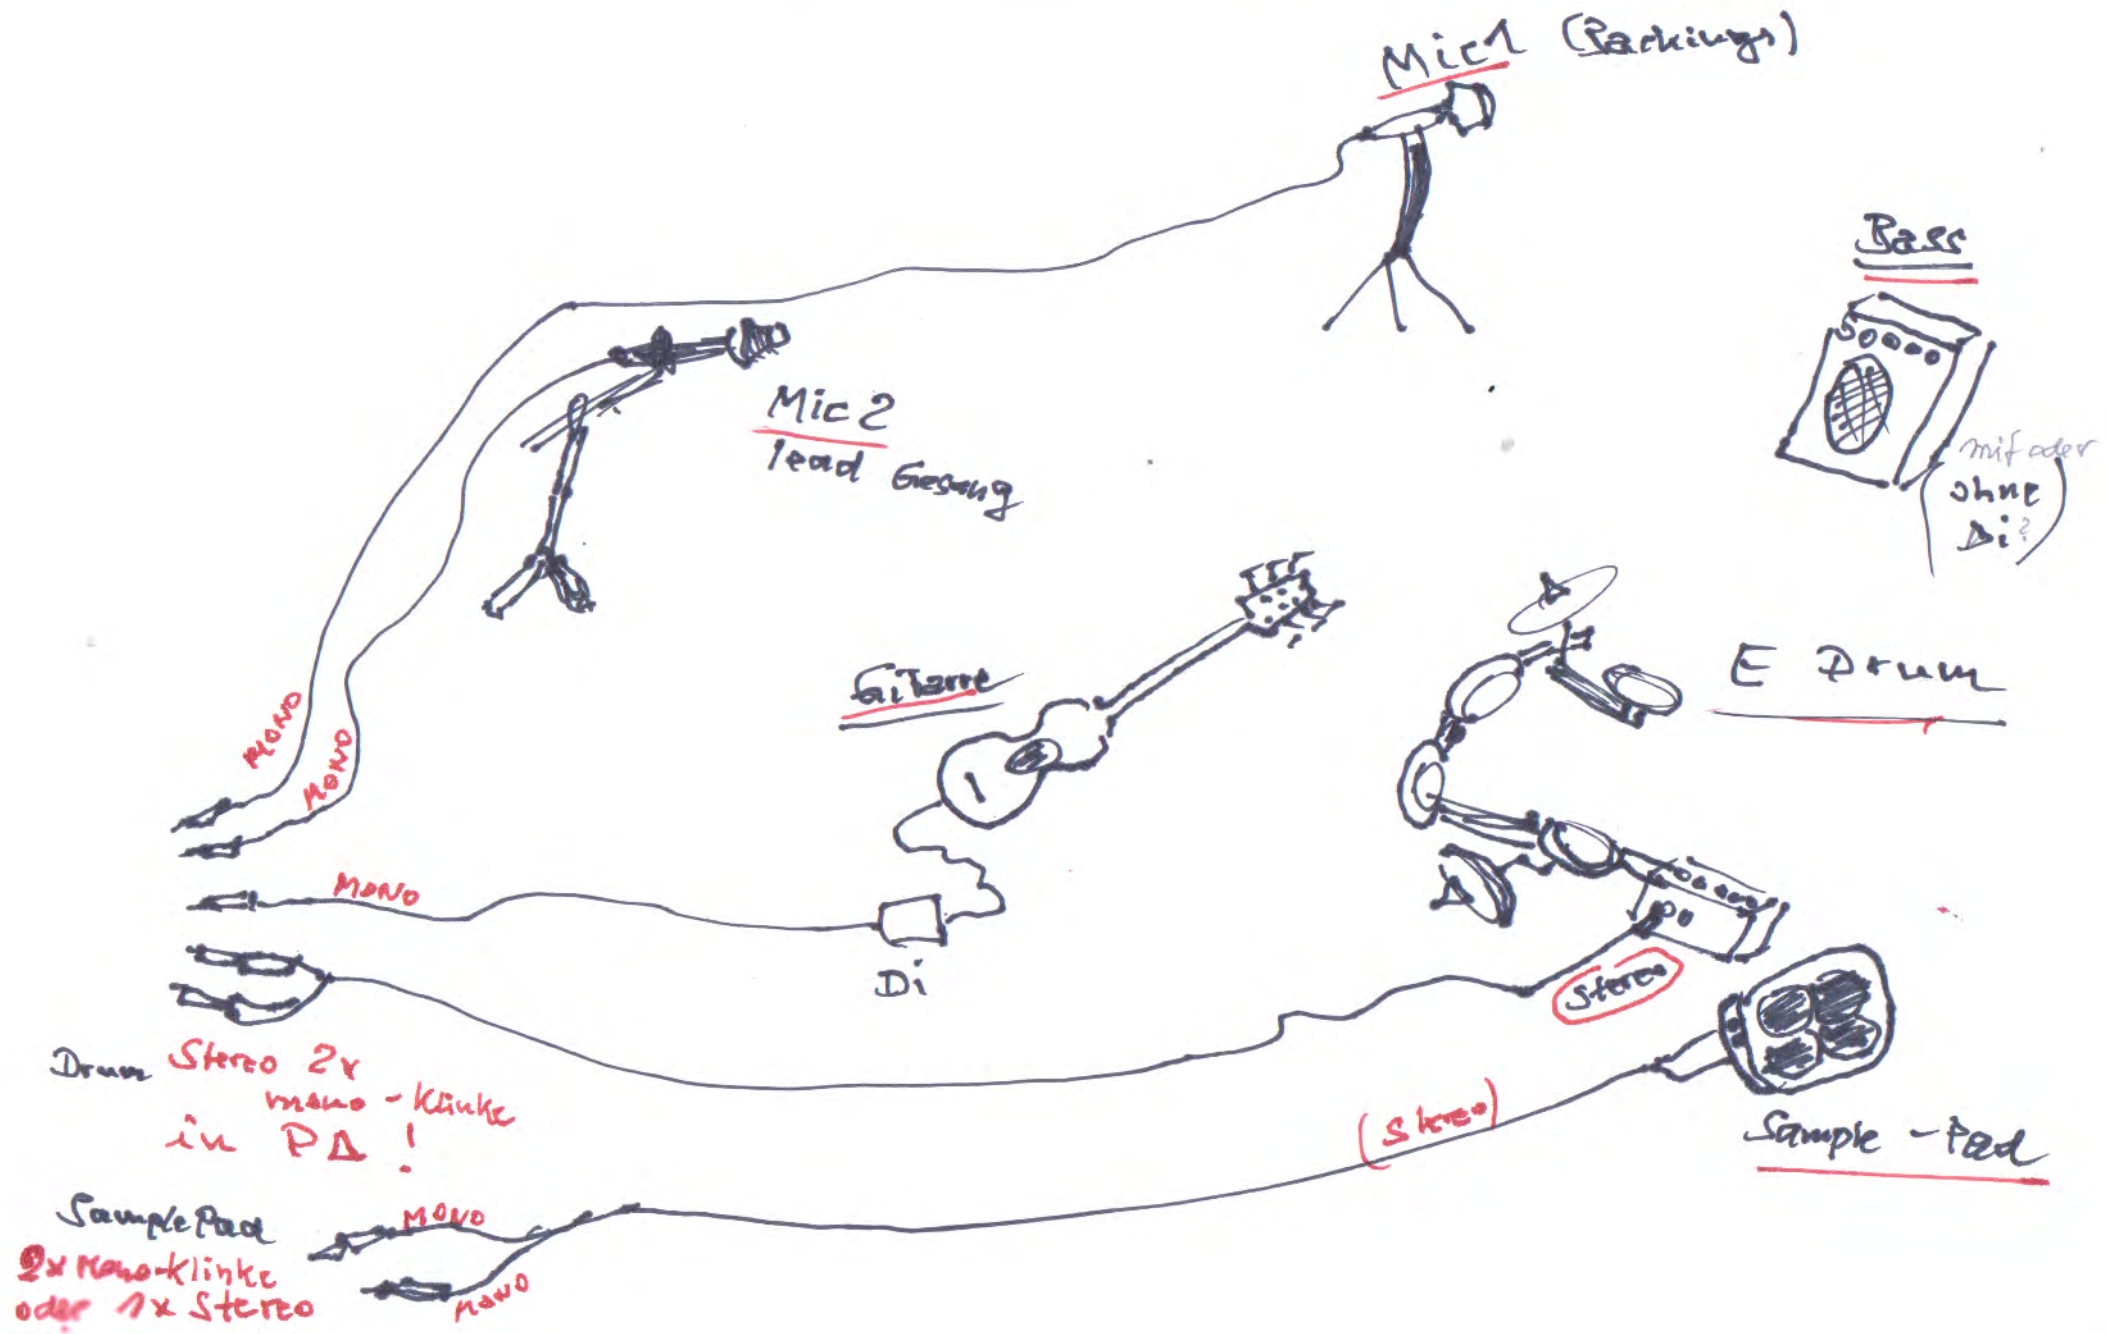 Mic 1 (Backings)
Bass
mit oder
ohne
Di?
Mic 2
lead Gesang
Gitarre
E Drum
MONO
MONO
MONO
Di
Stereo
Drum Stereo 2x
mono-Klinke
in PA!
(Stereo)
Sample-Pad
SamplePad
MONO
2x Mono-Klinke
oder 1x Stereo
MONO